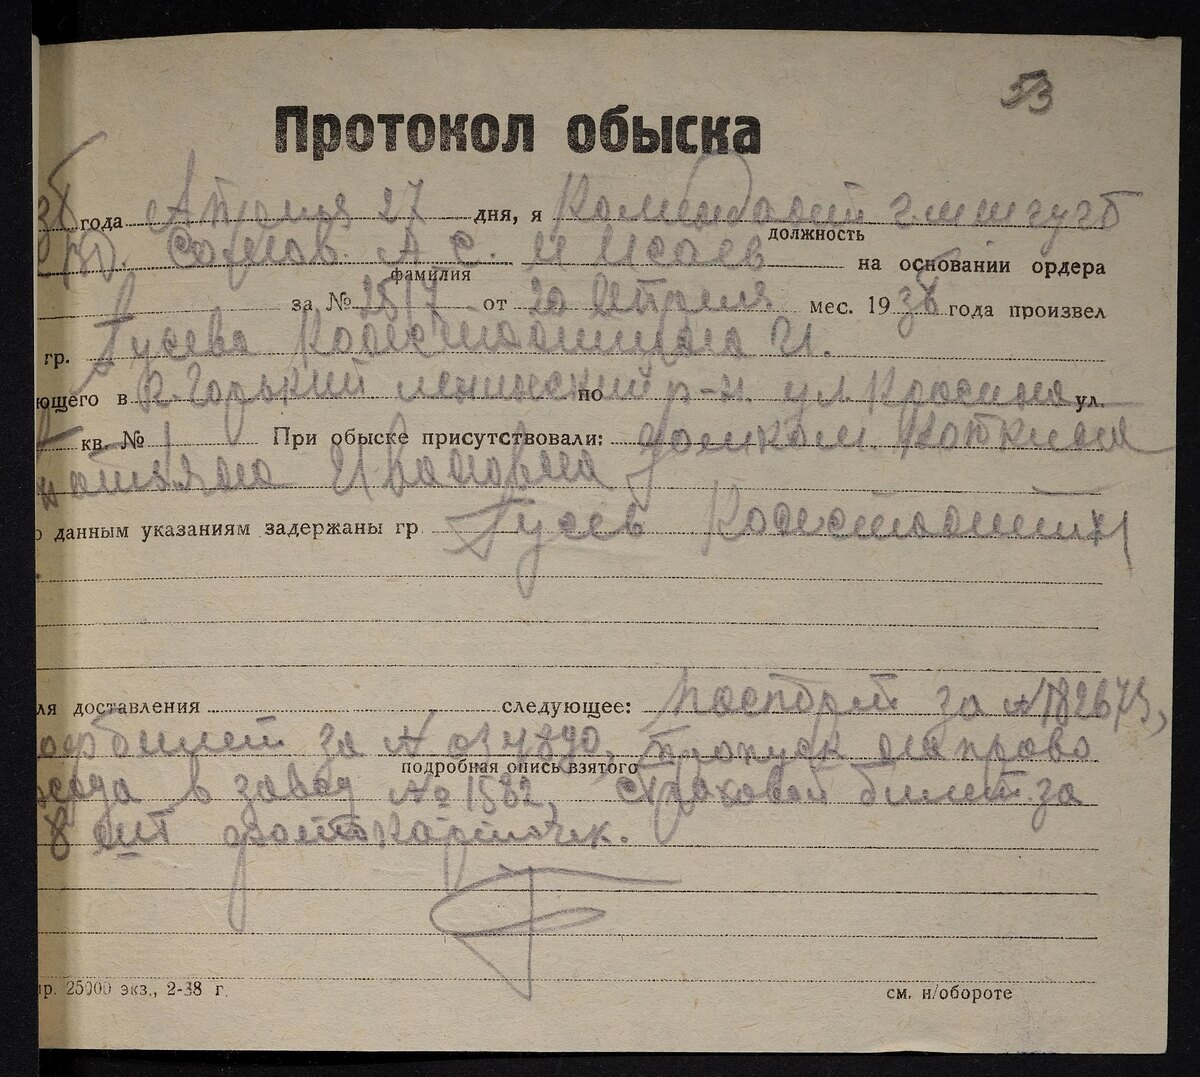 53
Протокол обыска
38 года Апреля 27 дня, я Комендант
должность
Сомов. А С. и Исаев на основании ордера
фамилия
за № 2517 от 20 Апреля мес. 1938 года произвел
гр. Гусева Константина И.
ющего в г. Горький ленинский по р-н. ул. Красина ул.
кв. № 1 При обыске присутствовали: домком.
Ивановна
о данным указаниям задержаны гр. Гусев Константин
ля доставления следующее: Паспорт за №
билет за № пропуск на право
подробная опись взятого
хода в завод № 1582, страховой билет за
8 шт фотокарточек.
ир. 25000 экз., 2-38 г.
см. н/обороте